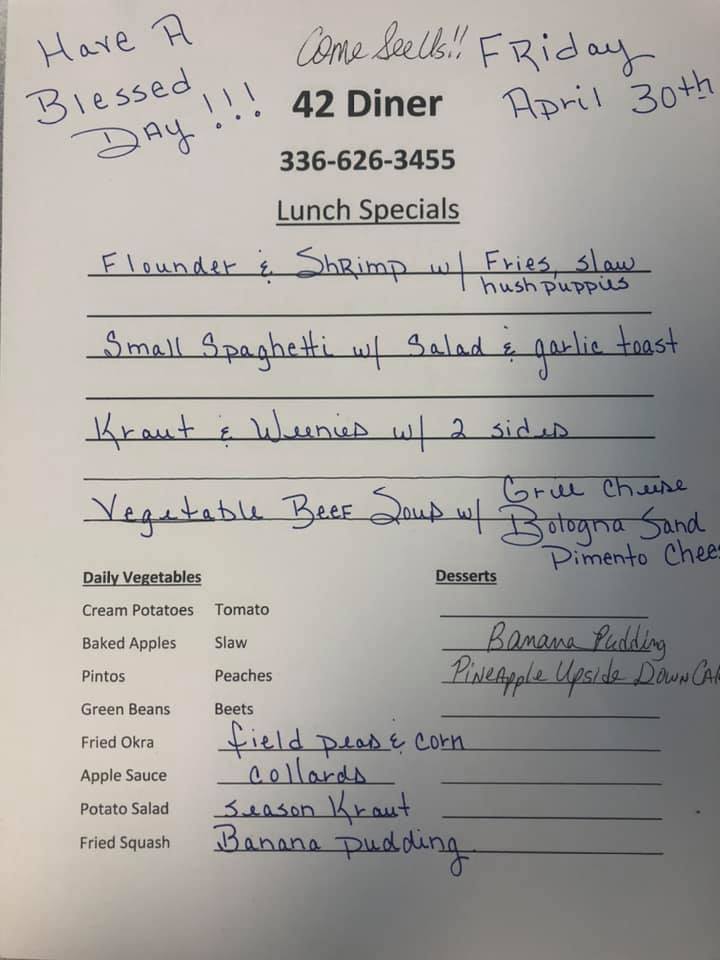 Have A
Blessed
Day!!!
Come See Us!!
Friday
April 30th
42 Diner
336-626-3455
Lunch Specials
Flounder & Shrimp w/ Fries, slaw
hushpuppies
Small Spaghetti w/ Salad & garlic toast
Kraut & Weenies w/ 2 sides
Vegetable Beef Soup w/ Grill Cheese
Bologna Sand
Pimento Chees
Daily Vegetables
Desserts
Cream Potatoes Tomato
Baked Apples Slaw
Banana Pudding
Pintos Peaches
Pineapple Upside Down Cak
Green Beans Beets
Fried Okra field peas & corn
Apple Sauce collards
Potato Salad season Kraut
Fried Squash Banana pudding